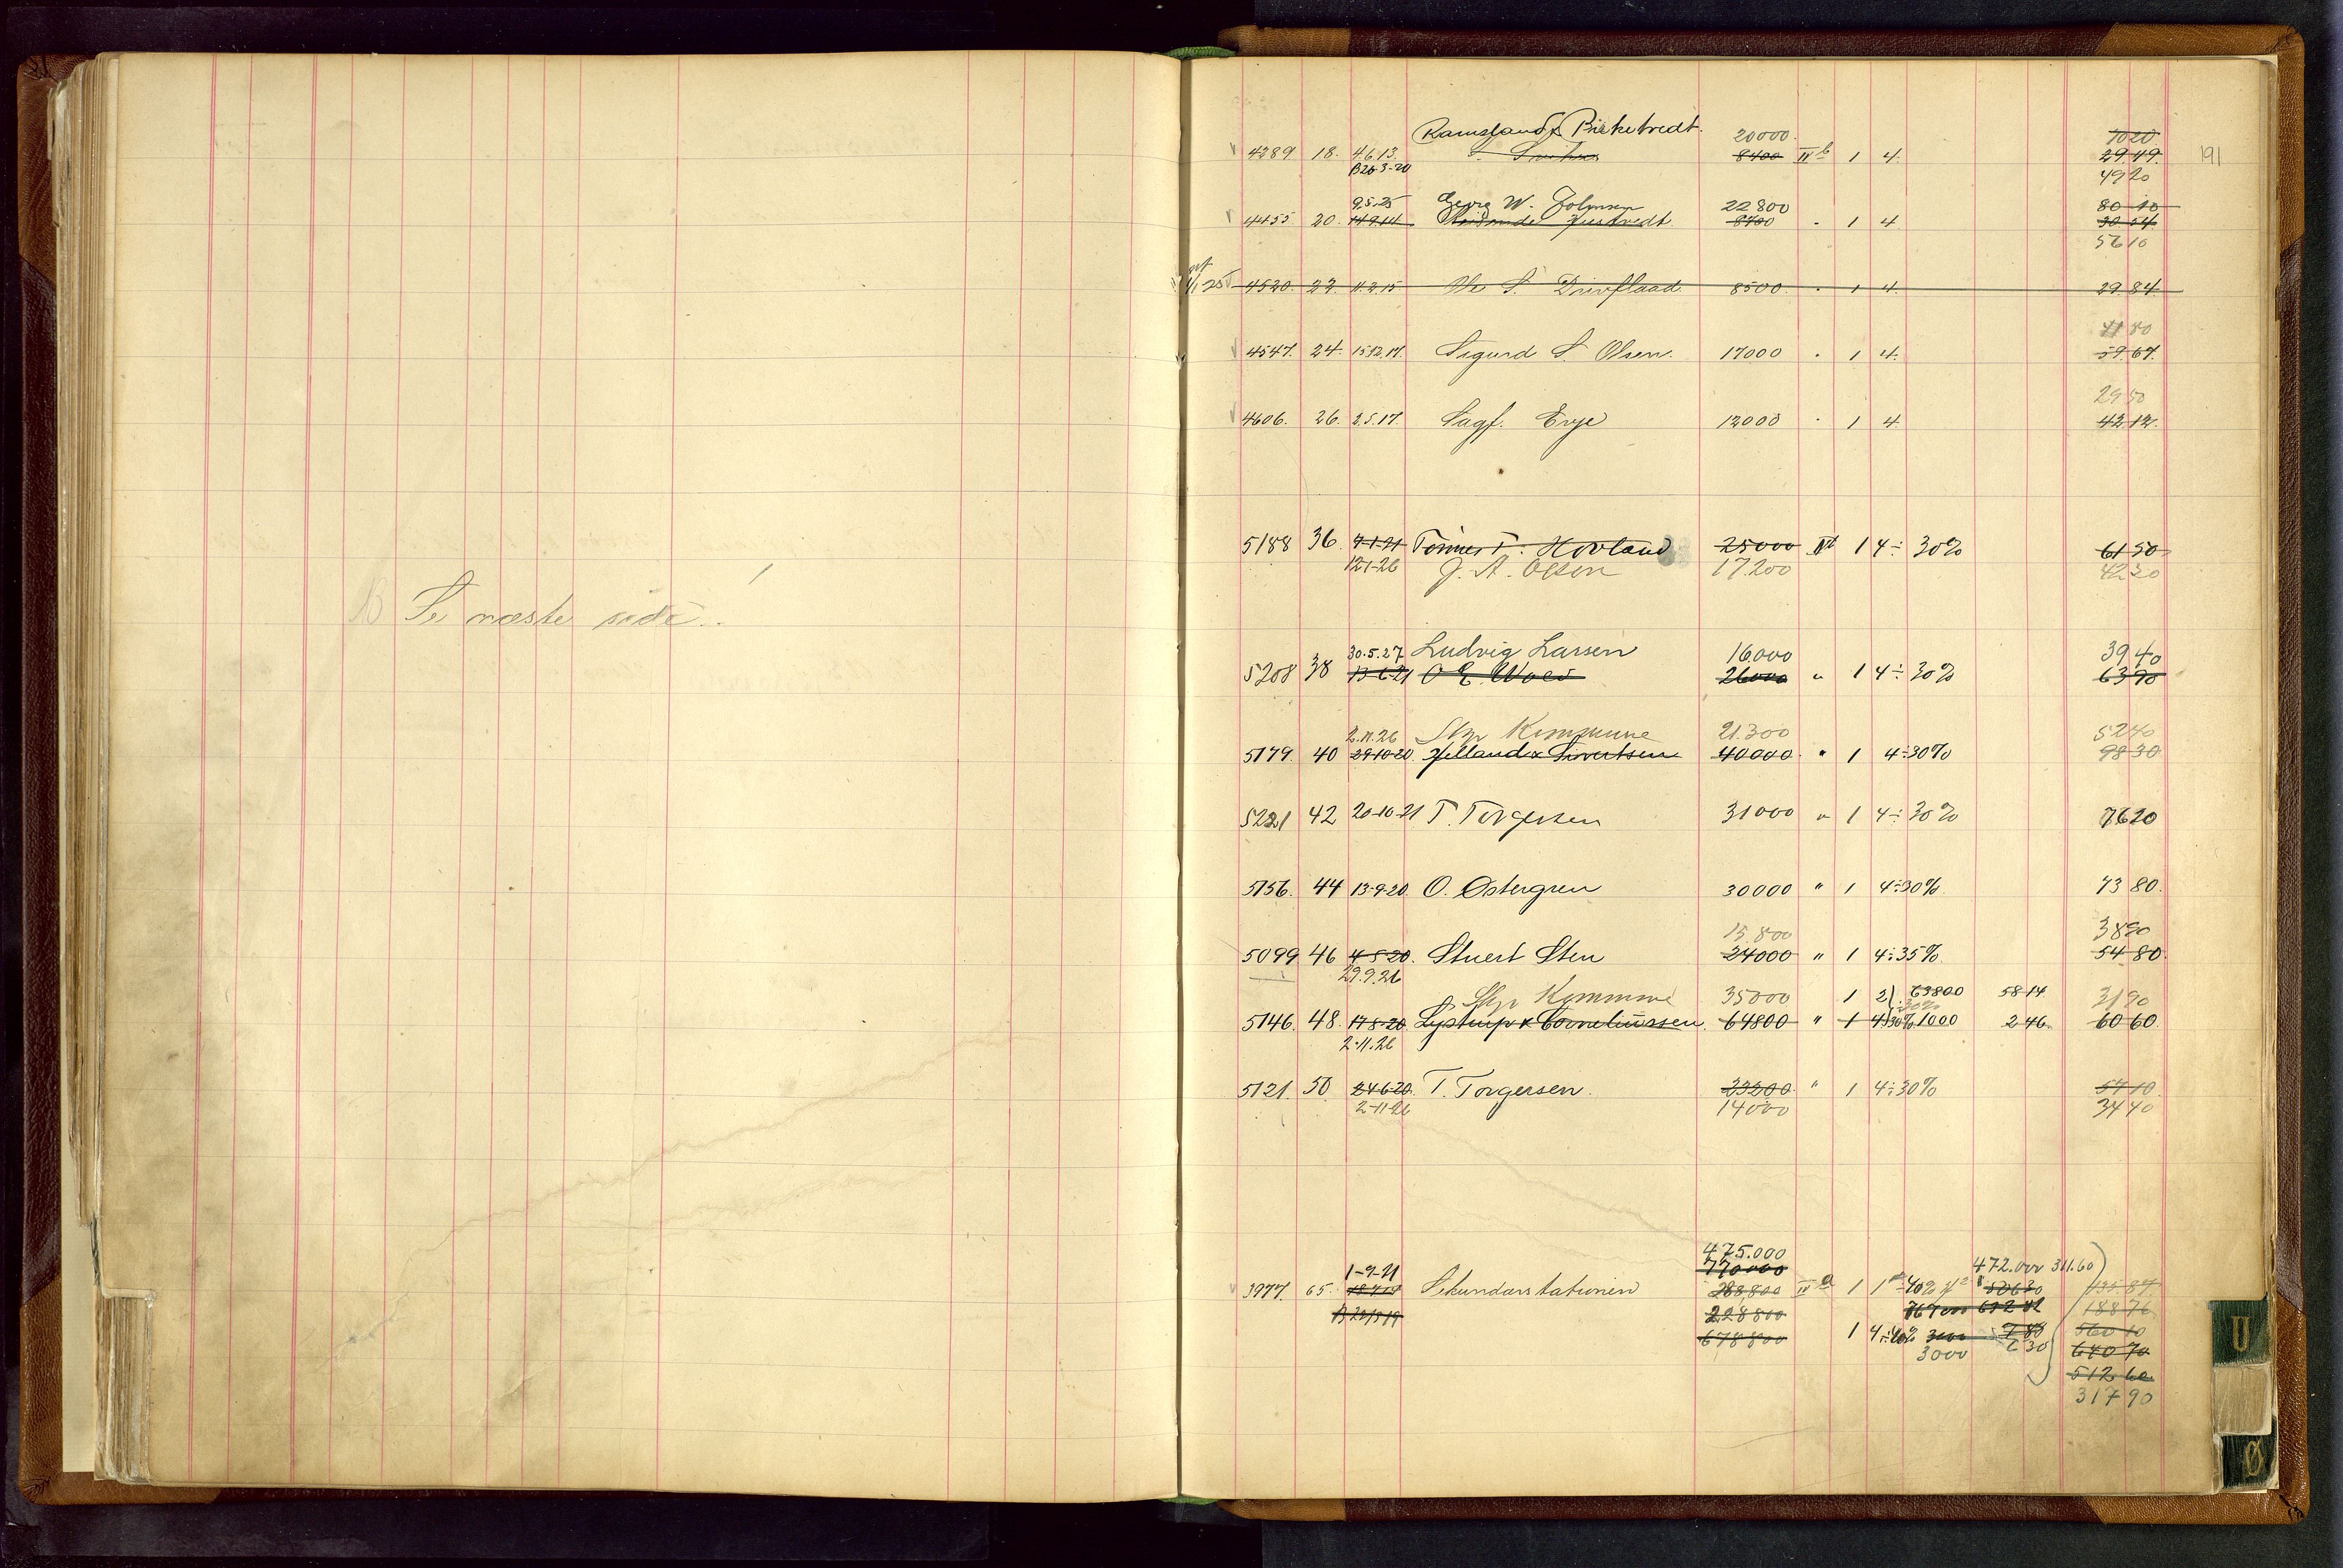 Se næste side.
191
Ramsland & Birketvedt. 20000. 7020
4289 18. 4.6.13. 8400 II b 1 4. 29.49.
B 26-3-20 49 20
9.5.25 Georg W. Johnsen 22800 80 10
4455 20. 14.9.14 8700 " 1 4 30 54
56 10
1/1 25 4520. 22. 11.2.15 Ole S. Drivflaad. 8500 " 1 4. 29.84
41 80
4547. 24. 15.12.17. Sigurd S. Olsen. 17000 " 1 4. 59.67.
29 50
4606. 26. 2.5.17. Sagf. Evje 12000 " 1 4 42 12.
5188 36. 7-1-21 Tønnes T. Hovland 25000 II b 1 4 ÷ 30% 61 50
12-1-26 J. A. Olsen 17.200 42 30
30.5.27 Ludvig Larsen 16000 39 40
5208 38 13-6-21 26000 " 1 4 ÷ 30% 63 90
2.11.26 Kommune 21.300 52 40
5179. 40 29-10-20. Jelland & Sivertsen 40000. " 1 4 ÷ 30% 98 30
5221 42 20-10-21 T. Torgersen 31000 " 1 4 ÷ 30% 76 20
5156. 44 13-9-20. O. Østergren 30000 " 1 4 ÷ 30% 73 80.
15.800 38 90
5099 46 4-5-20. Stuert Sten 24000 " 1 4 ÷ 35% 54 80.
29.9.26
Kommune 35000 1 2 63800 58 14 21 90
30%
5146. 48. 17-8-20. Lystrup & Corneliussen. 64800 " 1 4 30% 1000 2 46. 60 60.
2.11.26
5121. 50 24-6-20. T. Torgersen. 23200. " 1 4 ÷ 30% 57 10.
2-11-26 14000 34 40
475.000
1-9-21 770000 472.000 311.60
3977. 65. Sekundærstationen 288,800 II a 1 1 ÷ 40% 135.87
228800 767000 188 76
678800 1 4 ÷ 40% 3000 7 80 560 10
3000 6 30 640 70
512 60
317 90
U
Ø